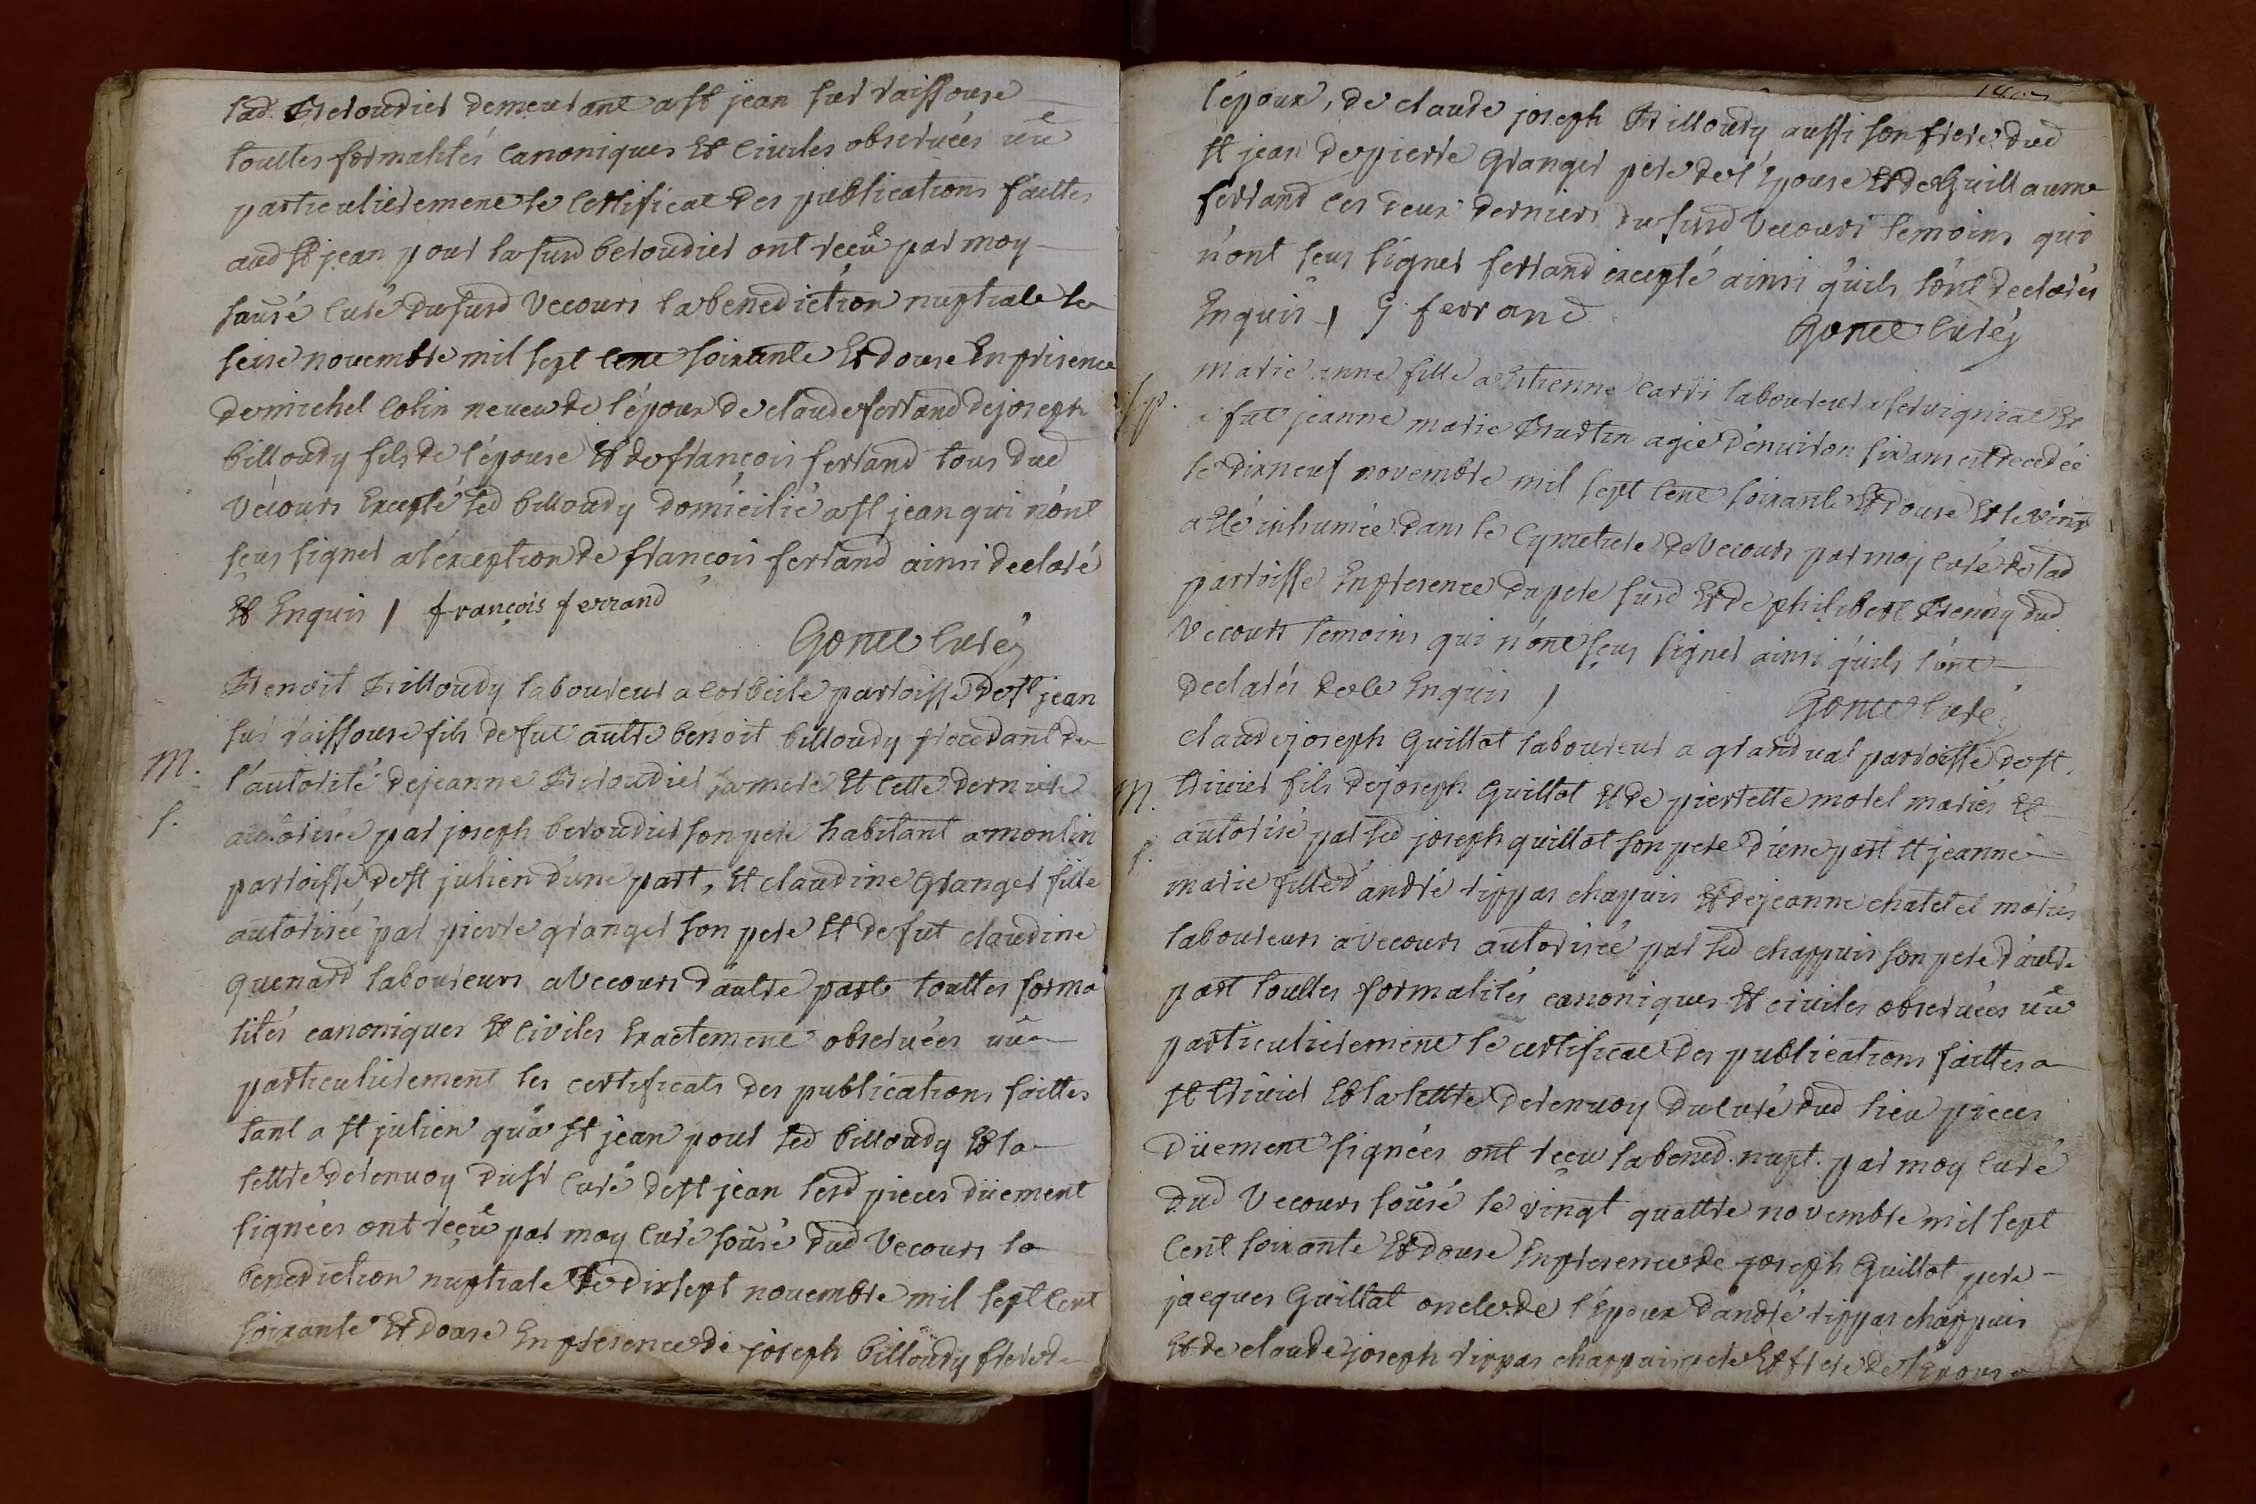 lad. Beroudier demeurant a st jean sur raissouse
touttes formalités canoniques et civiles observées vû
particulierement le certificat des publications faittes
aud st jean pour la susd beroudier ont reçû par moy
sousé curé du susd Vecours la benediction nuptiale le
seise novembre mil sept cent soixante et douse en presence
de michel colin neveu de l'époux de claude ferrand de joseph
billoudy fils de l'épouse et de françois ferrand tous dud
Vécours excepté led billoudy domicilié a st jean qui n'ont
sçus signer a l'exception de françois ferrand ainsi declaré
et enquis / françois ferrand
Gonce curé
Benoit Billoudy laboureur a corbeile parroisse de st jean
sur raissouse fils de fut aultre benoit billoudy procedant de
M.
l'autorité de jeanne Beroudier sa mere et cette derniere
s.
autorisée par joseph beroudier son pere habitant a montin
parroisse de st julien d'une part, et claudine Granger fille
autorisée par pierre granger son pere et de fut claudine
quenard laboureurs a Vecours d'aultre part touttes forma
lités canoniques et civiles exactement observées vû
particulierement les certificats des publications faittes
tant a st julien qu'a st jean pour led billoudy et la
lettre de renvoy du sr curé de st jean lesd pieces düement
signées ont reçû par moy curé sousé dud Vecours la
benediction nuptiale le dixsept novembre mil sept cent
soixante et douse en presence de joseph billoudy frere de
l'époux, de claude joseph Billoudy aussi son frere dud
st jean de pierre Granger pere de l'épouse et de Guillaume
ferrand les deux derniers du susd Vecours temoins qui
n'ont sçus signer ferrand excepté ainsi qu'ils l'ont declarés
enquis / G ferrand
Gonce curé
marie anne fille a etienne carri laboureur a servigniat et
s.p.
a fut jeanne marie Burtin agée d'environ six ans est decedée
le dixneuf novembre mil sept cent soixante et douse et le vint
a été inhumée dans le cymetiere de Vecours par moy curé de lad
parroisse en presence du pere susd et de philibert dud
Vecours temoins qui n'ont sçus signer ainsi qu'ils l'ont
declarés de ce enquis /
Gonce curé
claude joseph Guillot laboureur a grandval parroisse de st
M.
trivier fils de joseph Guillot et de pierrette morel mariés et
s.
autorisé par led joseph guillot son pere d'une part et jeanne
marie fille d'andré rippas chapuis et de jeanne chatelet mariés
laboureurs a Vecours autorisée par led chappuis son pere d'aultre
part touttes formalités canoniques et civiles observées vû
particulierement le certificat des publications faittes a
st trivier et la lettre de renvoy du curé dud lieu pieces
düement signées ont reçu la bened. nupt. par moy curé
dud Vecours sousé le vingt quattre novembre mil sept
cent soixante et douse en presence de joseph Guillot pere
jacques Guillot oncle de l'époux d'andré rippas chappuis
et de claude joseph rippas chappuis pere et frere de l'épouse